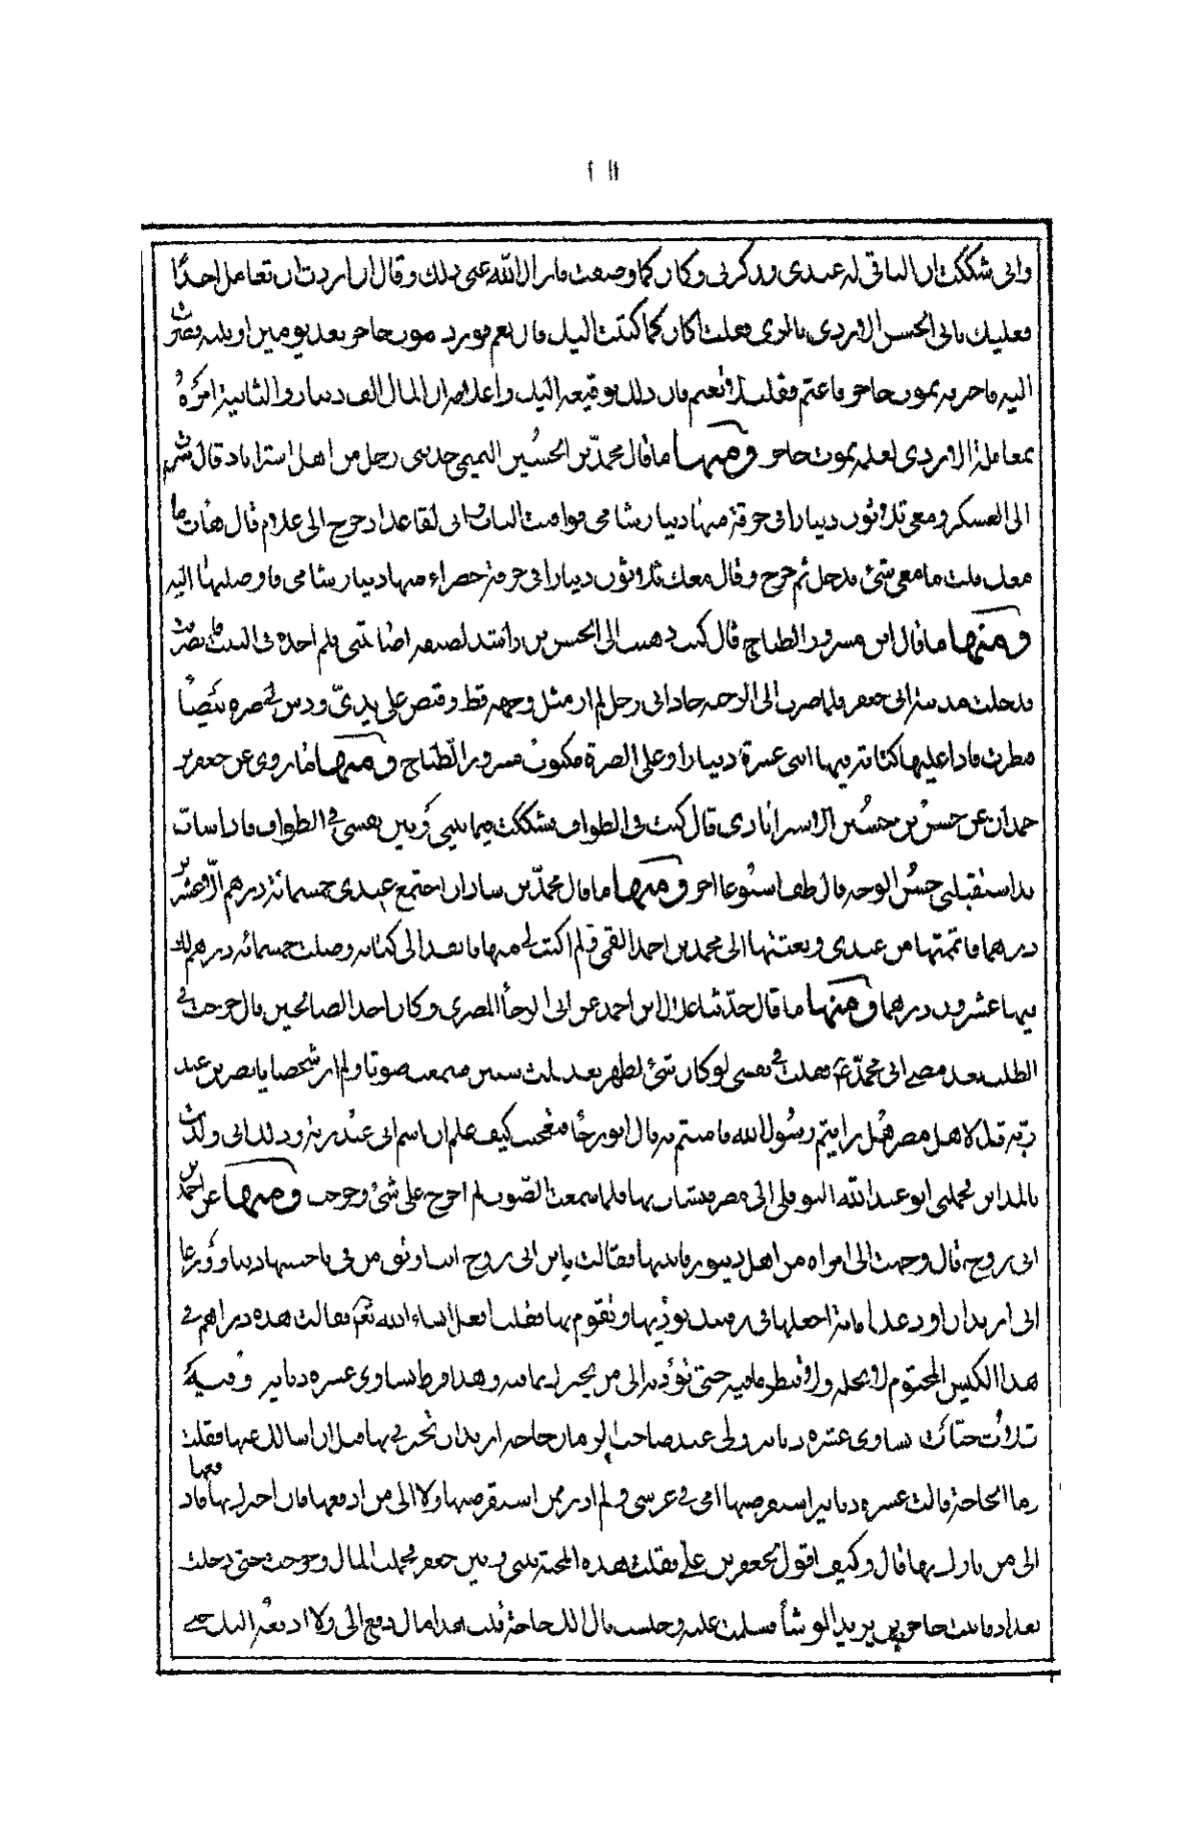 واني شككت ان الباقي له عندي وذكرني وكان كما وصفت فازال الله عني ذلك وقال ان اردت ان تعامل احدًا
فعليك بابي الحسن الاردي بالري فقلت اكان كما كتبت اليك قال نعم فورد موت حاجز بعد يومين او ثلثه
اليه فاخبرته بموت حاجز فاغتم فقلت لا تغتم فان ذلك توقيعه اليك واعلامه ان المال الف دينار والثانية امره
بمعاملة الاردي لعلمه بموت حاجز ومنها ما قال محمد بن الحسين التميمي حدثني رجل من اهل استراباد قال
الى العسكر ومعي ثلاثون دينارا في خرقة منها دينار شامي فوافيت الباب واني لقاعد اذ خرج الي غلام قال هات ما
معك قلت ما معي شئ فدخل ثم خرج وقال معك ثلاثون دينارا في خرقة خضراء منها دينار شامي فاوصلتها اليه
ومنها ما قال ابن مسرور الطباخ قال كتب ذهبت الى الحسن بن راشد لضيقه اصابتني فلم اجده في البيت فانصرفت
فدخلت مدينة ابي جعفر فلما صرت الى الرحبه حاذاني رجل لم ار مثل وجهه قط وقبض على يدي ودس لي صره بيضا
فنظرت فاذا عليها كتابة فيها اثنى عشرة دينارا وعلى الصرة مكتوب مسرور الطباخ ومنها ما روى عن جعفر بن
حمدان عن حسن بن حسين الاسترابادي قال كنت في الطواف فشككت فيما بيني وبين نفسي في الطواف فاذا شاب
قد استقبلني حسن الوجه قال طف اسبوعا اخر ومنها ما قال محمد بن شاذان اجتمع عندي خمسمائة درهم الا عشرين
درهما فاتممتها من عندي وبعثتها الى محمد بن احمد القمي ولم اكتب لي منها فانفذ الي كتابه وصلت خمسمائه درهم لك
فيها عشرون درهما ومنها ما قال حدثنا علان ابن احمد عن ابي الرجأ المصري وكان احد الصالحين قال خرجت في
الطلب بعد مضي ابي محمد ع فقلت في نفسي لو كان شئ لظهر بعد ثلث سنين فسمعت صوتا ولم ار شخصا يا نصر بن عبد
ربه قل لاهل مصر هل رايتم رسول الله فامنتم به قال ابو رجأ فعجبت كيف علم ان اسم ابي عند ربه وذلك اني ولدت
بالمداين فحملني ابو عبد الله النوفلي الى مصر فنشات بها فلما سمعت الصوت لم اعرج على شئ وخرجت ومنها عن احمد بن
ابي روح قال وجهت الي امراه من اهل دينور فاتيتها فقالت يا ابن ابي روح انت اوثق من في ناحيتنا دينا وورعا
اني اريد ان اودعك امانة اجعلها في رقبتك تؤديها وتقوم بها فقلت افعل ان شاء الله تعم فقالت هذه دراهم في
هذا الكيس المختوم لا تحله ولا تنظر ما فيه حتى تؤديه الى من يخبرك بما فيه وهذا قرط يساوي عشره دنانير وفيه
ثلاث حبات تساوي عشره دنانير ولي عند صاحب الزمان حاجة اريد ان يخبرني بها قبل ان اسالك عنها فقلت
وما الحاجة قالت عشره دنانير استقرضتها امي في عرسي ولم ادر ممن استقرضتها ولا الى من ادفعها فان اخبرك بها فادفعها
الى من يامرك بها قال وكيف اقول لجعفر بن علي فقلت هذه المحنة بيني وبين جعفر فحملت المال وخرجت حتى دخلت
بغداد فاتيت حاجز بن يزيد الوشأ فسلمت عليه وجلست قال الك حاجة قلت هذا مال دفع الي ولا ادفعه اليك حتى